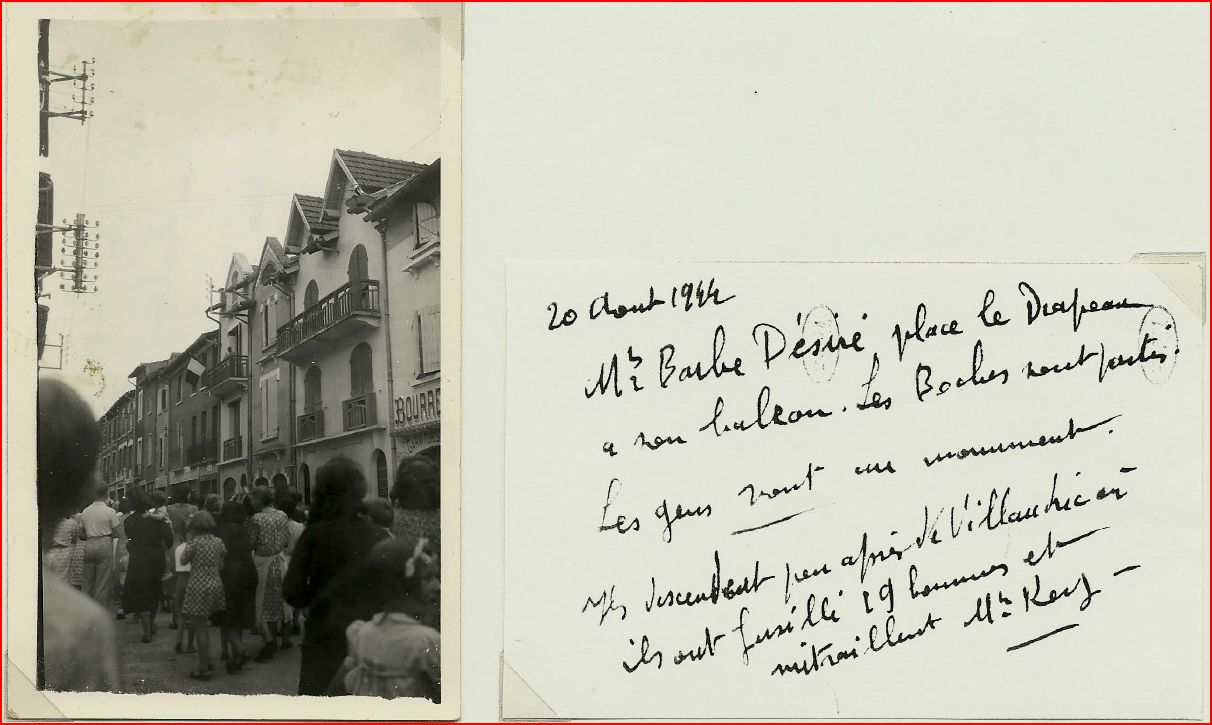 BOURRE
20 Aout 1944
Mr Barbe Désiré place le Drapeau
a son balcon. Les Boches sont partis.
Les gens vont au monument.
Ils descendent peu après de Villaudric où
ils ont fusillé 19 hommes et
mitraillent Mr